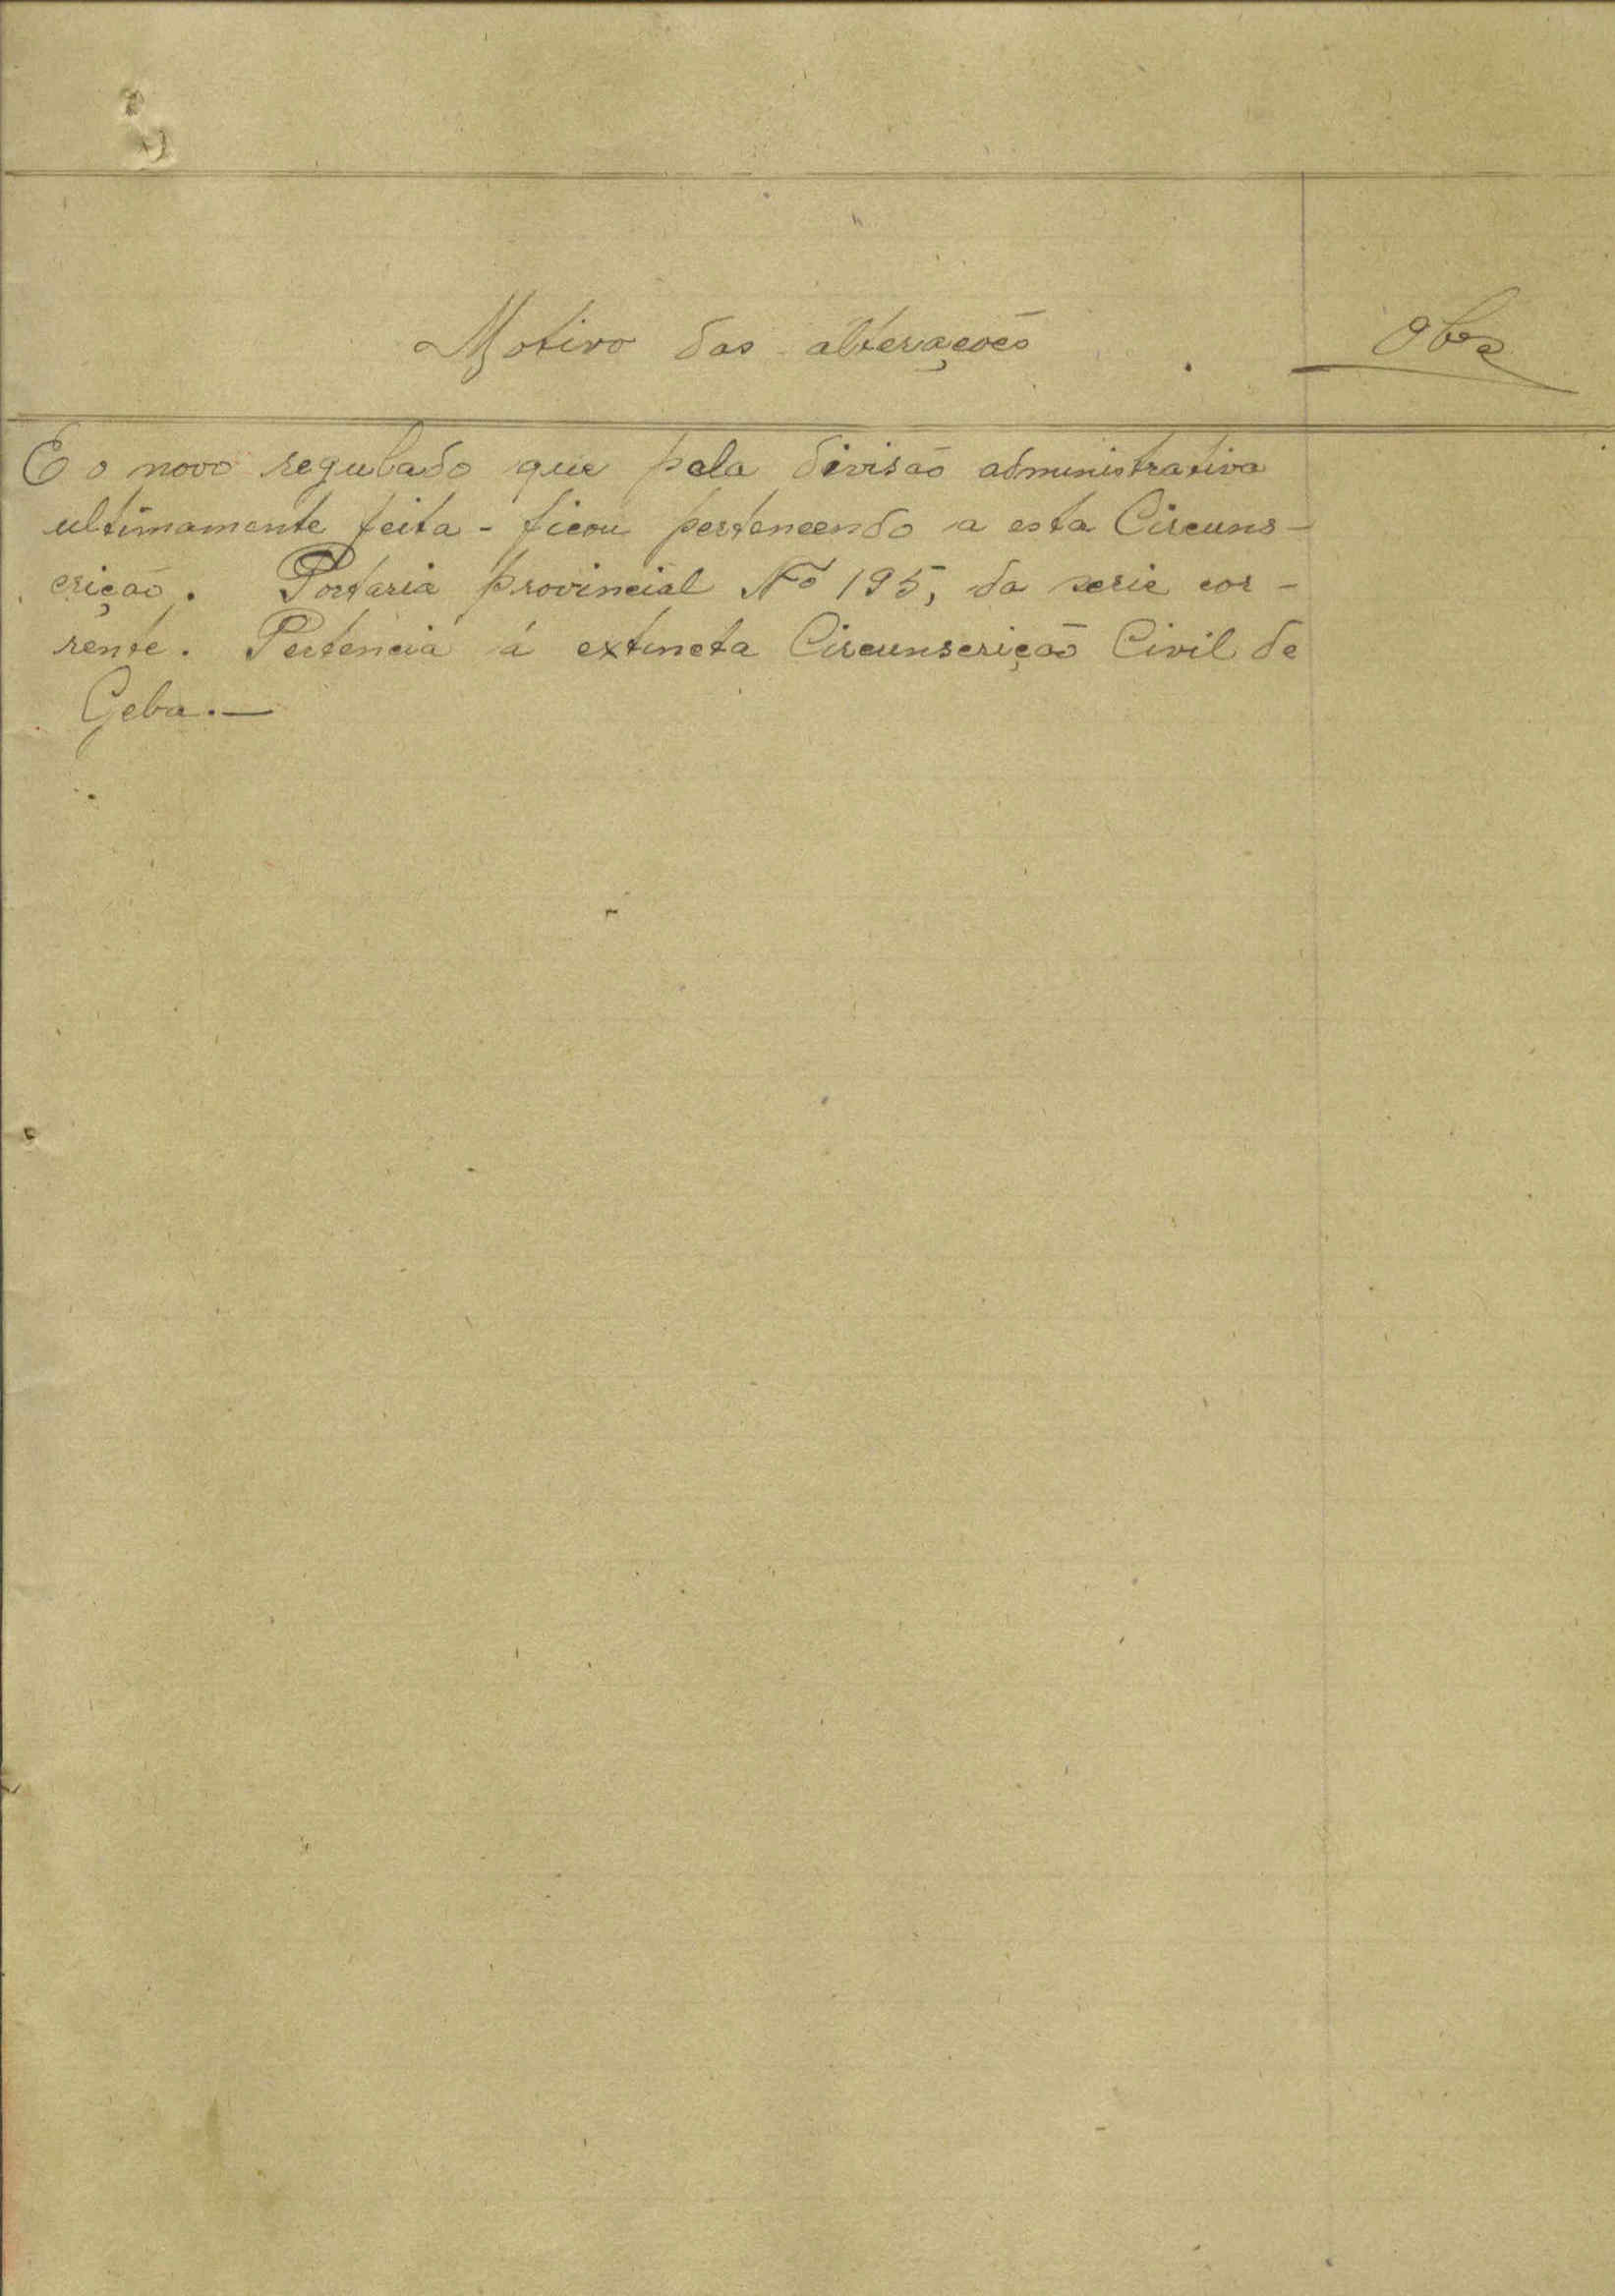 Motivo das alterações
Obs
É o novo regulado que pela divisão administrativa
ultimamente feita - ficou pertencendo a esta Circuns-
crição. Portaria provincial Nº 195, da serie cor-
rente. Pertencia á extincta Circunscrição Civil de
Geba.—